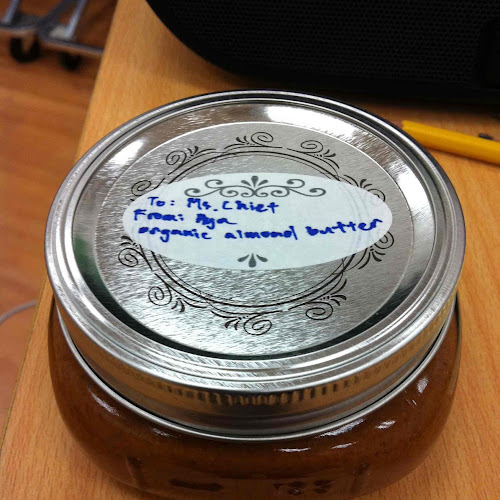 To: Ms. Chiet
From: Aya
organic almond butter